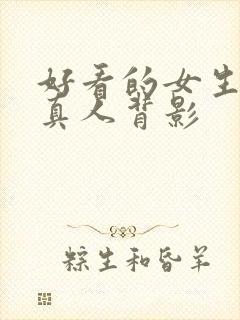 好看的女生
真人背影
粽生和昏羊